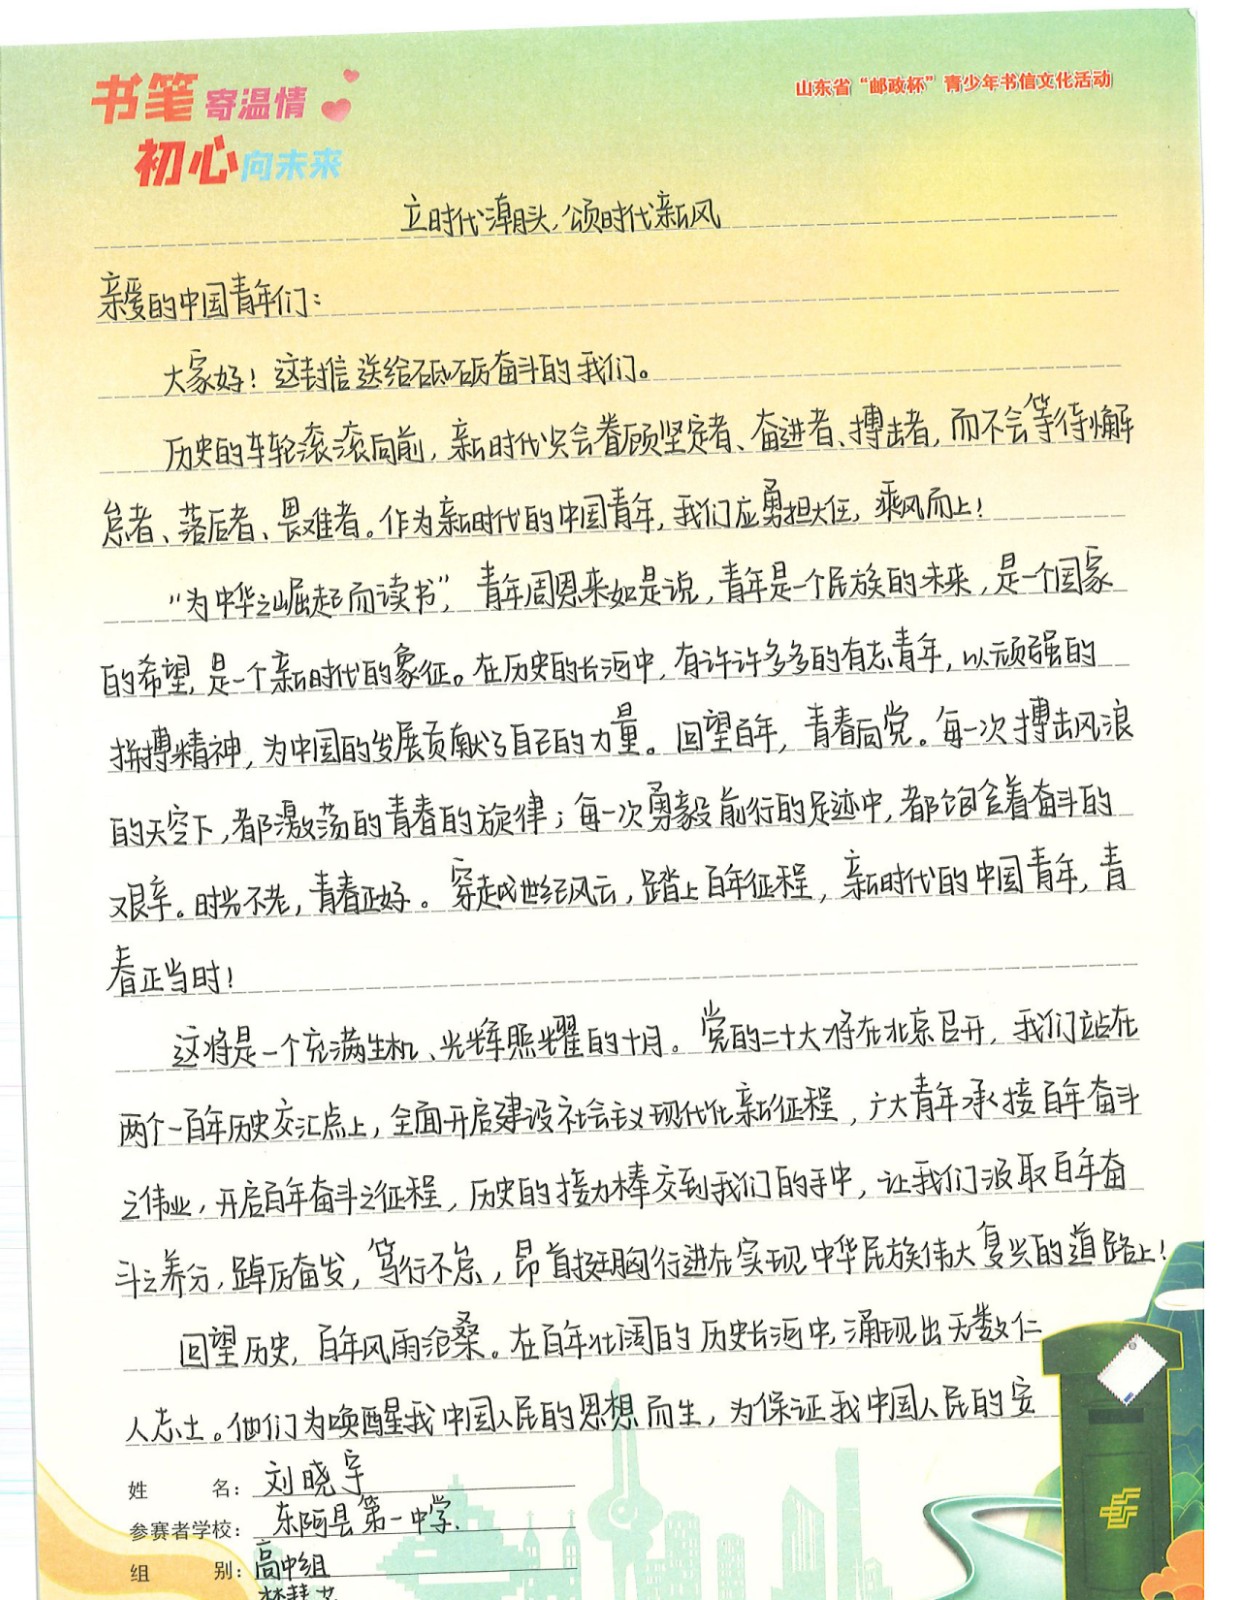 书笔寄温情
初心向未来
山东省“邮政杯”青少年书信文化活动
立时代潮头,颂时代新风
亲爱的中国青年们:
大家好!这封信送给砥砺奋斗的我们。
历史的车轮滚滚向前,新时代只会眷顾坚定者、奋进者、搏击者,而不会等待懈
怠者、落后者、畏难者。作为新时代的中国青年,我们应勇担大任,乘风而上!
“为中华之崛起而读书”,青年周恩来如是说,青年是一个民族的未来,是一个国家
的希望,是一个新时代的象征。在历史的长河中,有许许多多的有志青年,以顽强的
拼搏精神,为中国的发展贡献了自己的力量。回望百年,青春向党。每一次搏击风浪
的天空下,都激荡的青春的旋律;每一次勇毅前行的足迹中,都饱含着奋斗的
艰辛。时光不老,青春正好。穿越世纪风云,踏上百年征程,新时代的中国青年,青
春正当时!
这将是一个充满生机、光辉照耀的十月。党的二十大将在北京召开,我们站在
两个一百年历史交汇点上,全面开启建设社会主义现代化新征程,广大青年承接百年奋斗
之伟业,开启百年奋斗之征程,历史的接力棒交到我们的手中,让我们汲取百年奋
斗之养分,踔厉奋发,笃行不怠,昂首挺胸行进在实现中华民族伟大复兴的道路上!
回望历史,百年风雨沧桑。在百年壮阔的历史长河中,涌现出无数仁
人志士。他们为唤醒我中国人民的思想而生,为保证我中国人民的安
姓 名:刘晓宇
参赛者学校:东阿县第一中学.
组 别:高中组